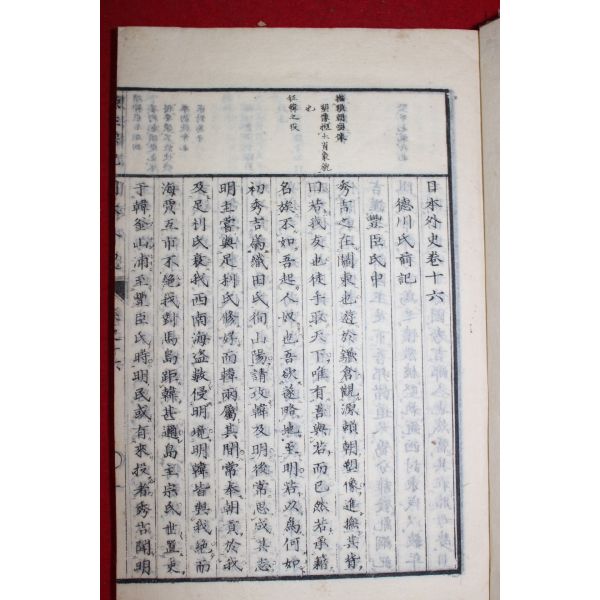 日本外史卷十六
德川氏前記
豐臣氏中
秀吉之在關東也遊於鎌倉觀源賴朝塑像進撫其背
曰若我友也徒手取天下唯有吾與若而已然若承藉
名族不如吾起人奴也吾欲遂略地至明若以爲何如
初秀吉爲織田氏徇山陽請攻韓及明後常思成其志
明主嘗與足利氏修好而韓兩屬其間常奉朝貢於我
及足利氏衰我西南海盜數侵明境明韓皆與我絕而
海賈互市不絕我對馬島距韓甚邇島主宗氏世置吏
于韓釜山浦至豐臣氏時明民或有來投者秀吉聞明
撫賴朝塑像
征韓之役